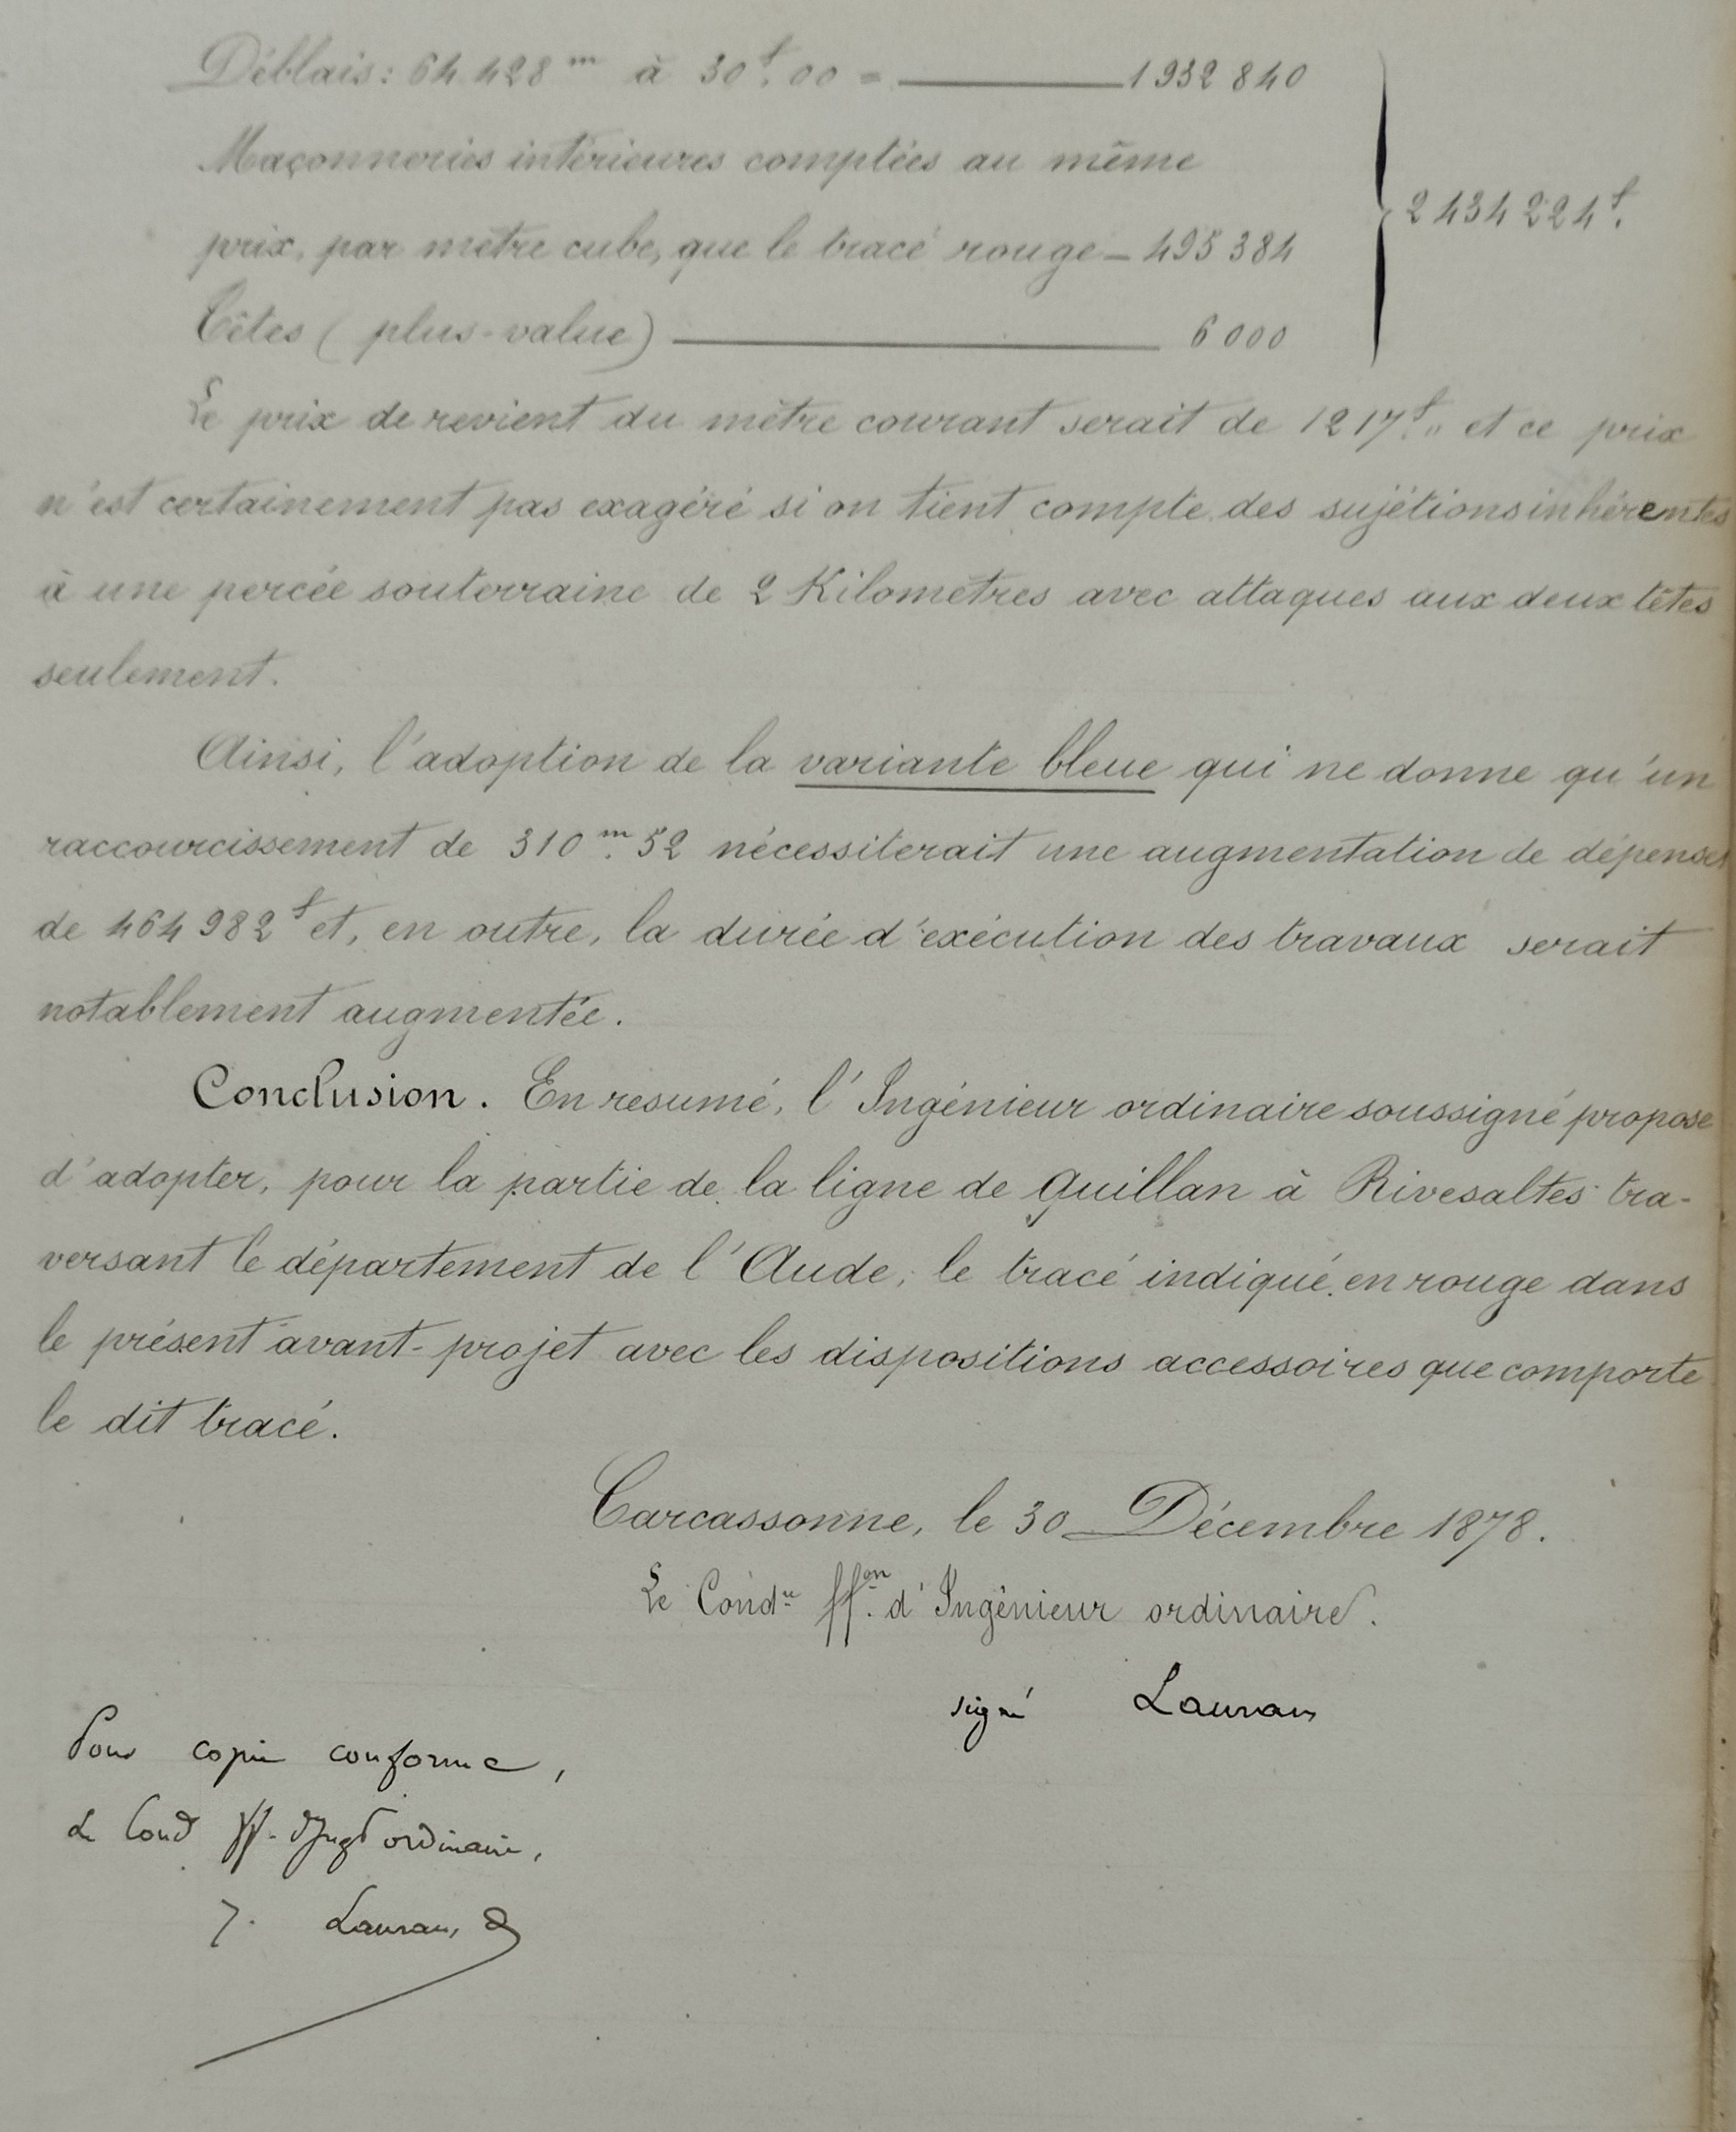 Déblais: 64 428 m à 30f.00 = 1 932 840
Maçonneries intérieures comptées au même
prix, par mètre cube, que le tracé rouge - 495 384
2 434 224f.
Têtes ( plus-value) 6 000
Le prix de revient du mètre courant serait de 1217f." et ce prix
n'est certainement pas exagéré si on tient compte des sujétions inhérentes
à une percée souterraine de 2 Kilomètres avec attaques aux deux têtes
seulement.
Ainsi, l'adoption de la variante bleue qui ne donne qu'un
raccourcissement de 310m.52 nécessiterait une augmentation de dépenses
de 464 982f et, en outre, la durée d'exécution des travaux serait
notablement augmentée.
Conclusion. En resumé, l'Ingénieur ordinaire soussigné propose
d'adopter, pour la partie de la ligne de Quillan à Rivesaltes tra-
versant le département de l'Aude, le tracé indiqué en rouge dans
le présent avant-projet avec les dispositions accessoires que comporte
le dit tracé.
Carcassonne, le 30 Décembre 1878.
Le Condr ffon. d'Ingénieur ordinaire.
signé Lauran
Pour copie conforme,
Le Cond ff. d'Ingr ordinaire,
J. Lauran